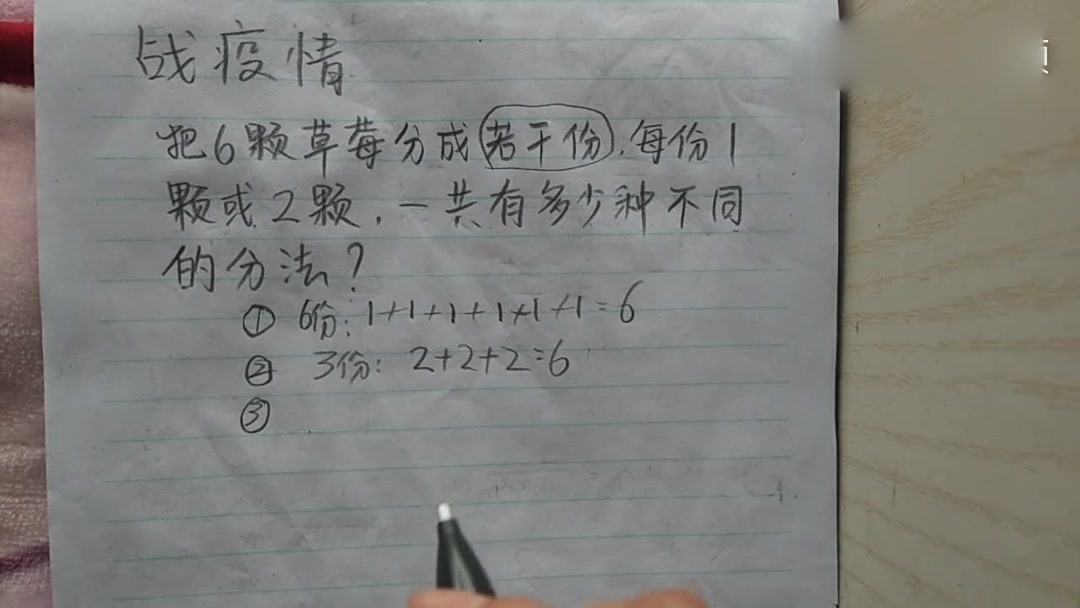 战疫情
把6颗草莓分成若干份,每份1
颗或2颗,一共有多少种不同
的分法?
① 6份: 1+1+1+1+1+1=6
② 3份: 2+2+2=6
③